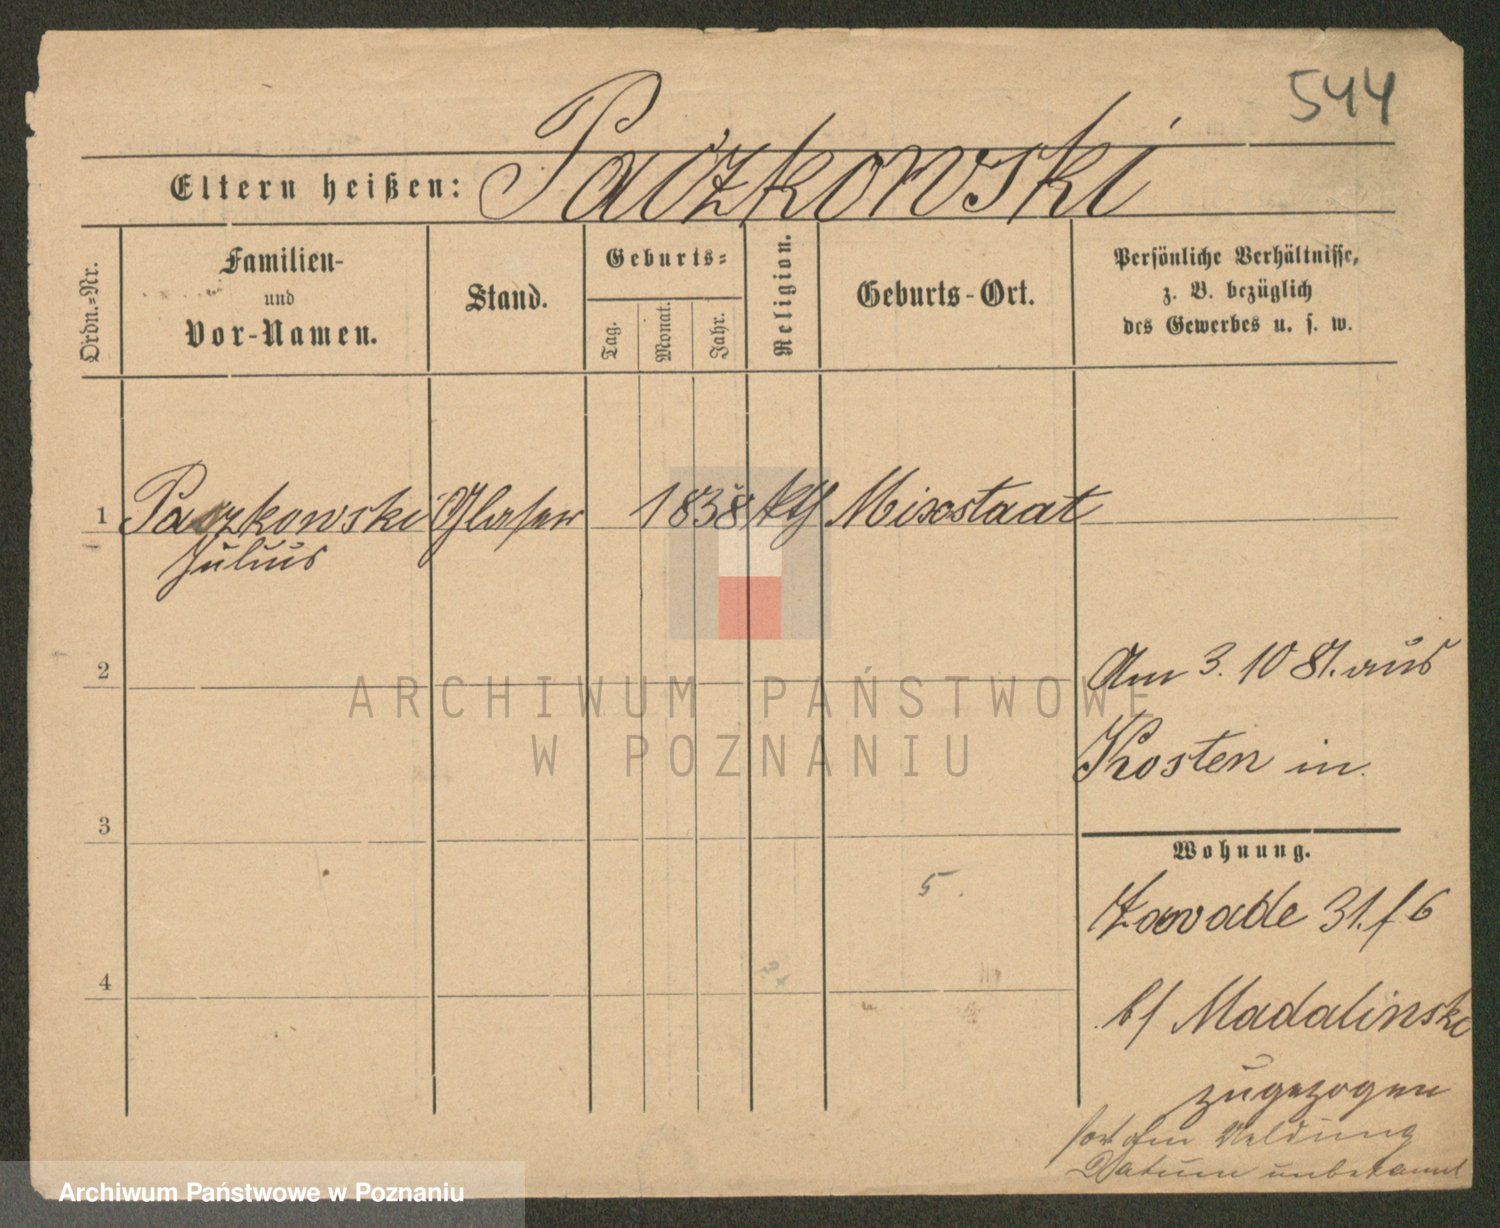 544
Eltern heißen: Paczkowski
Ordn.-Nr.
Familien-
und
Vor-Namen.
Stand.
Geburts-
Tag.
Monat.
Jahr.
Religion.
Geburts-Ort.
Persönliche Verhältnisse,
z. B. bezüglich
des Gewerbes u. s. w.
1 Paczkowski Glaser 1838 kth Mixstaat
Julius
2
Am 3. 10 81. aus
Kosten in.
3
Wohnung.
5.
Zawade 31. f 6
4
b/ Madalinski
zugezogen
Meldung
Datum unbekannt
ARCHIWUM PAŃSTWOWE
W POZNANIU
Archiwum Państwowe w Poznaniu